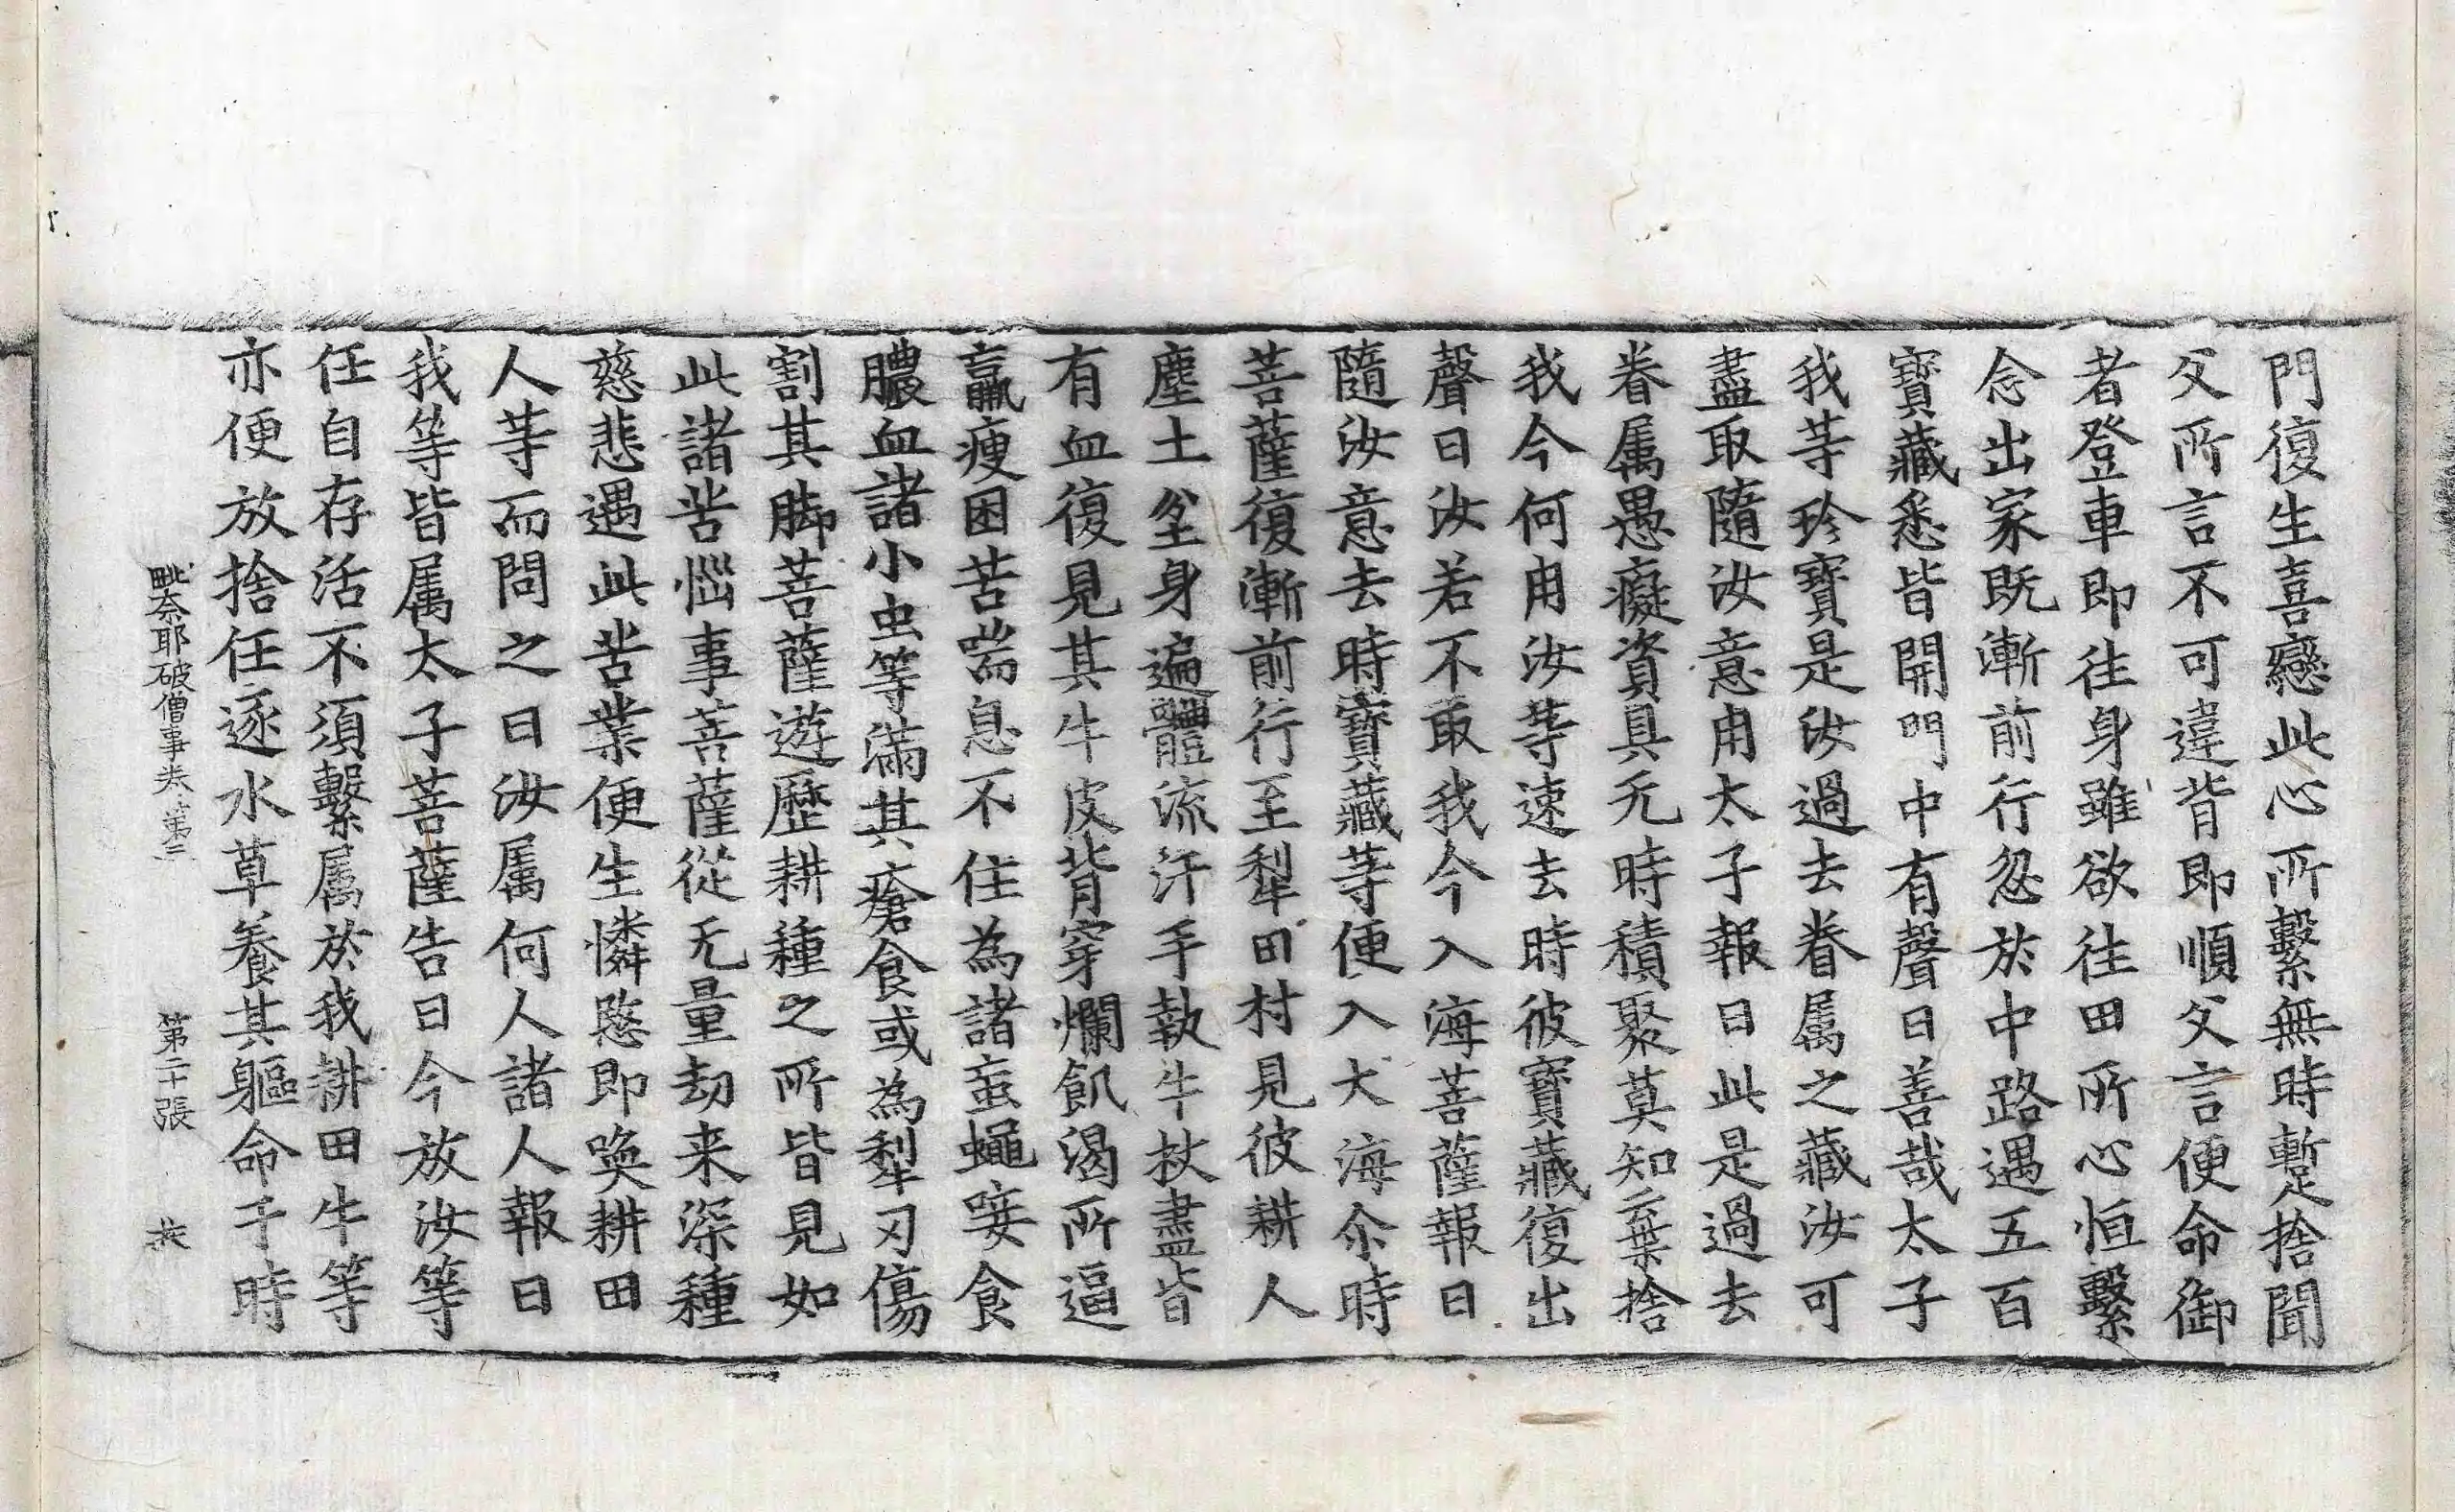 門復生喜戀此心所繫無時蹔捨聞
父所言不可違背即順父言便命御
者登車即往身雖欲往田所心恒繫
念出家既漸前行忽於中路遇五百
寶藏悉皆開門中有聲曰善哉太子
我等珍寶是汝過去眷属之藏汝可
盡取隨汝意用太子報曰此是過去
眷属愚癡資具无時積聚莫知棄捨
我今何用汝等速去時彼寶藏復出
聲曰汝若不取我今入海菩薩報曰
隨汝意去時寶藏等便入大海尒時
菩薩復漸前行至犁田村見彼耕人
塵土坌身遍體流汗手執牛杖盡皆
有血復見其牛皮背穿爛飢渴所逼
羸瘦困苦喘息不住為諸䖟蠅唼食
膿血諸小虫等滿其瘡食或為犁刃傷
割其脚菩薩遊歷耕種之所皆見如
此諸苦惱事菩薩從无量劫来深種
慈悲遇此苦業便生憐愍即喚耕田
人等而問之曰汝属何人諸人報曰
我等皆属太子菩薩告曰今放汝等
任自存活不須繫属於我耕田牛等
亦便放捨任逐水草養其軀命于時
毗奈耶破僧事卷第三　第二十張